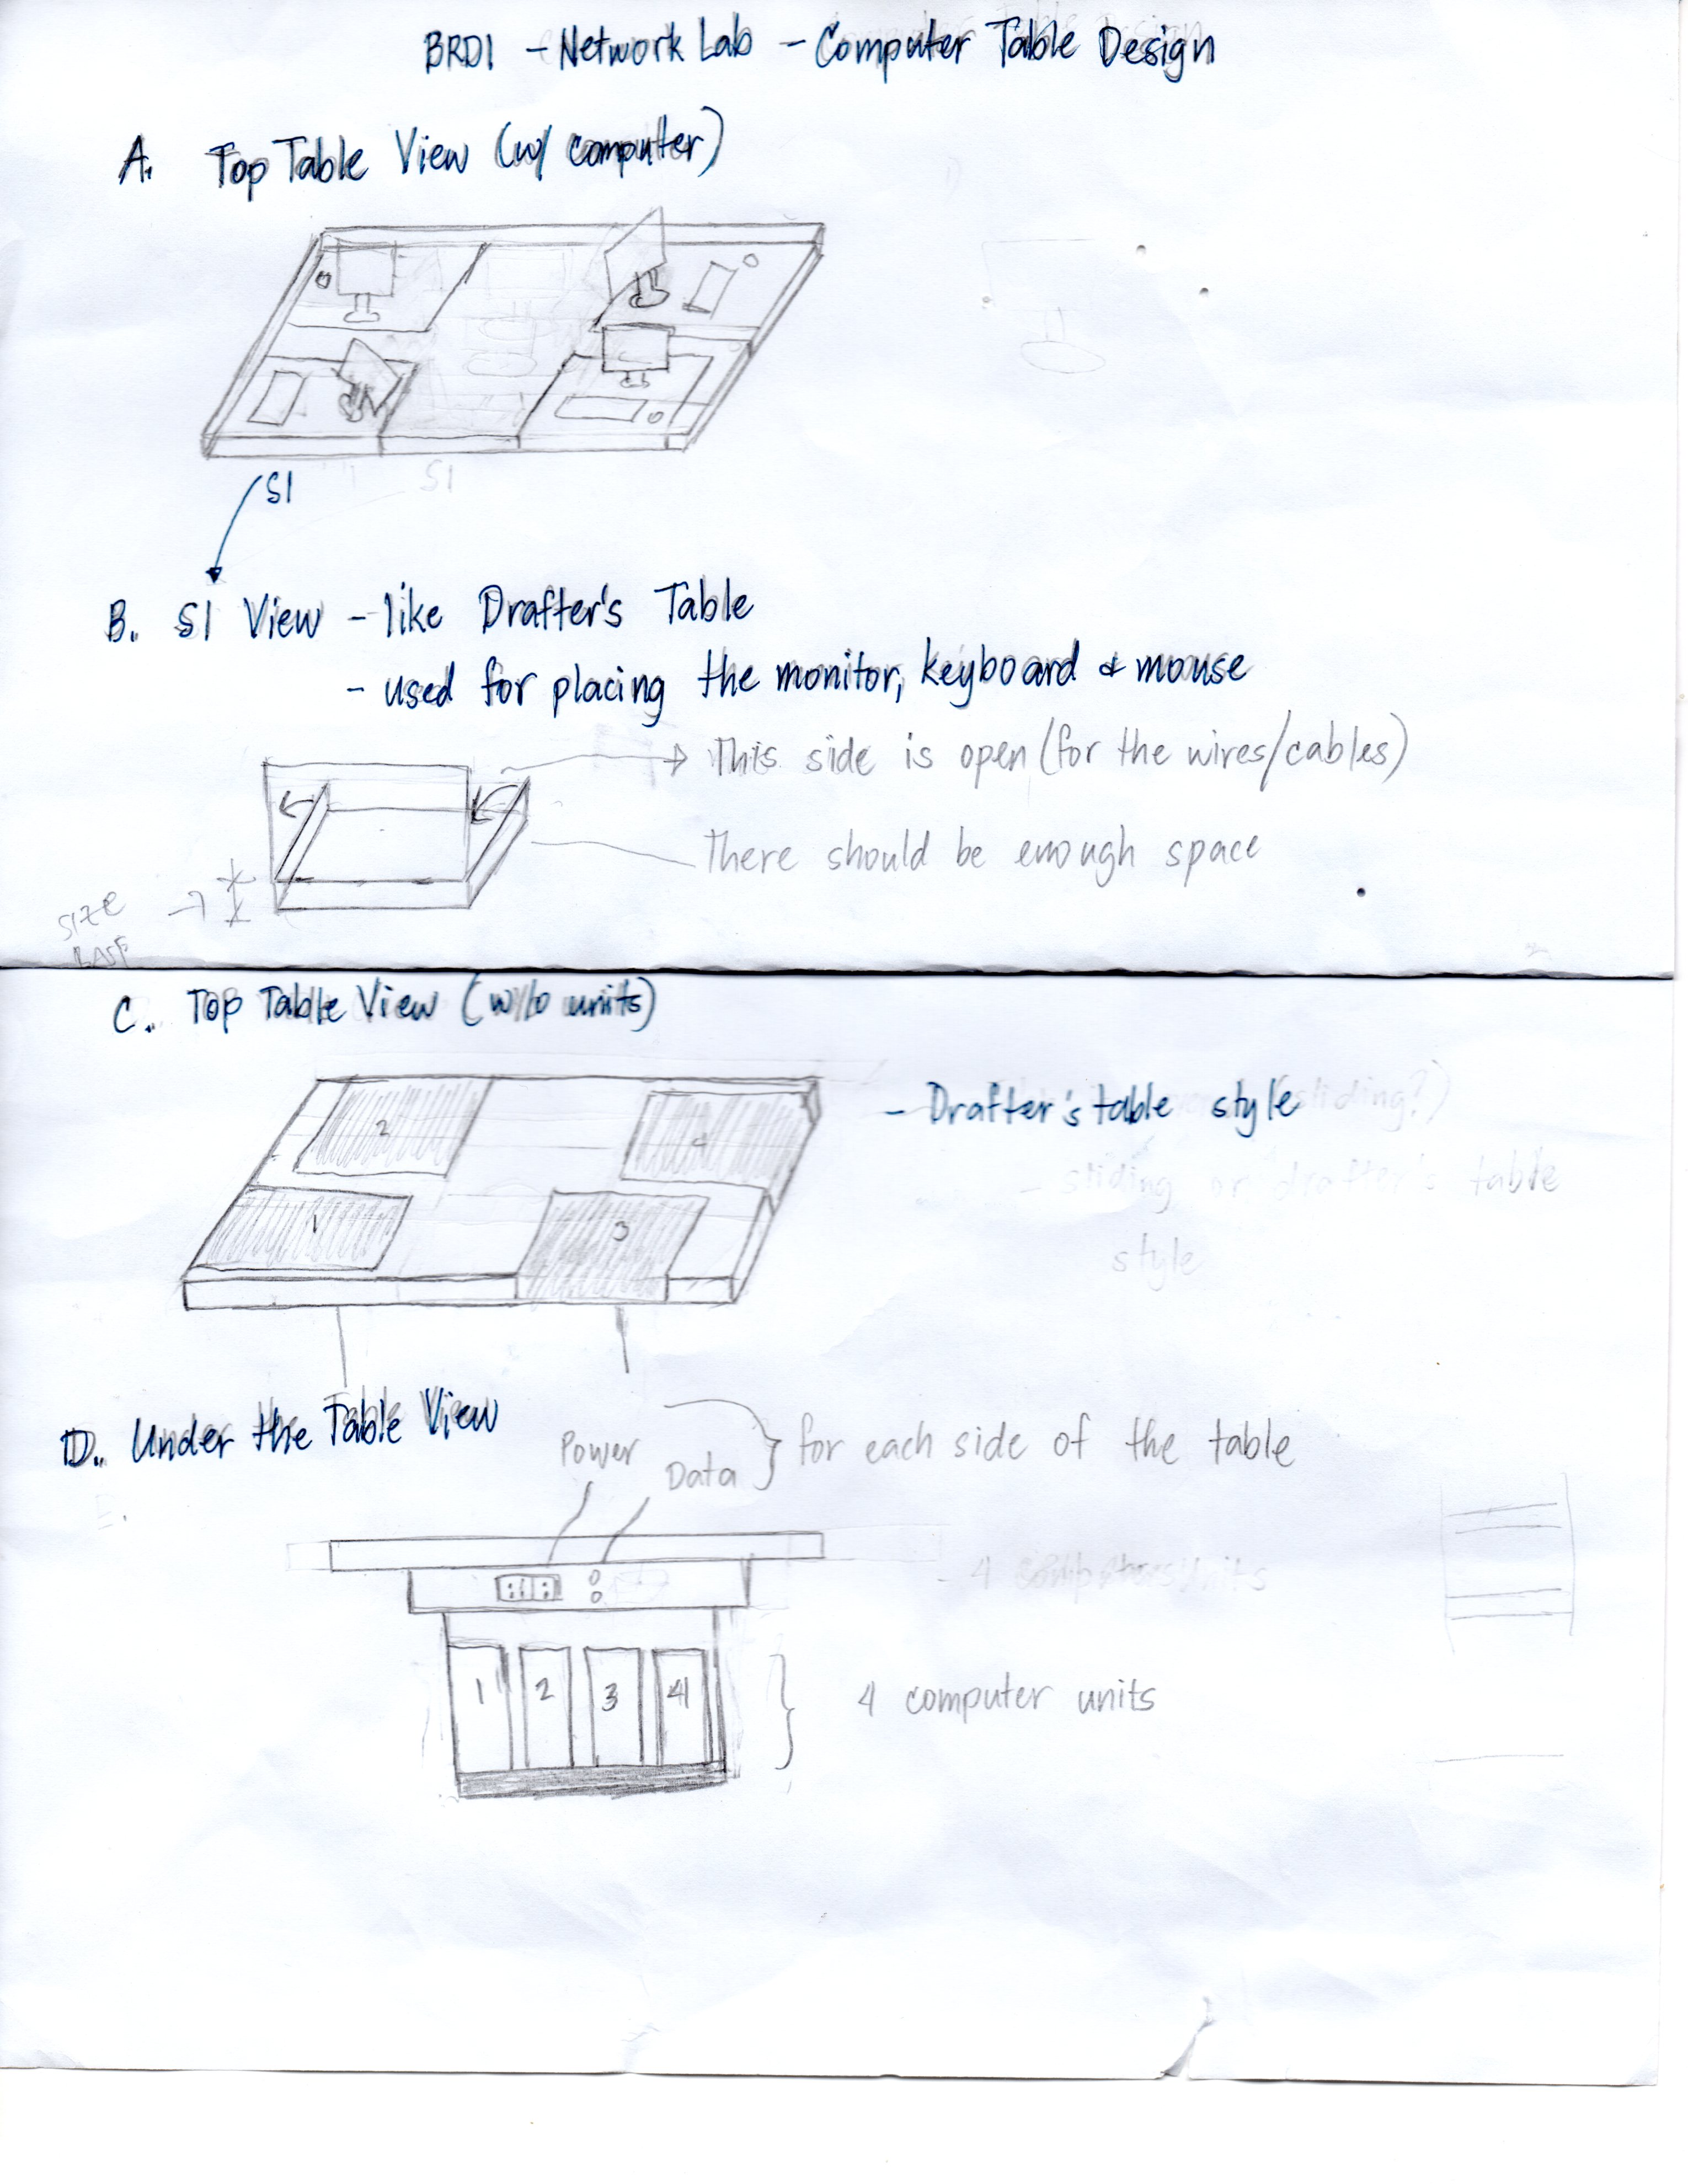 BRD1 - Network Lab - Computer Table Design
A. Top Table View (w/ computer)
S1
S1
B. S1 View - like Drafter's Table
- used for placing the monitor, keyboard & mouse
This side is open (for the wires/cables)
There should be enough space
SIZE
C. Top Table View (w/o units)
2
4
1
3
- Drafter's table style
sliding?)
- sliding or drafter's table
style
D. Under the Table View
Power
Data } for each side of the table
E.
- 4 computers units
1 2 3 4
4 computer units